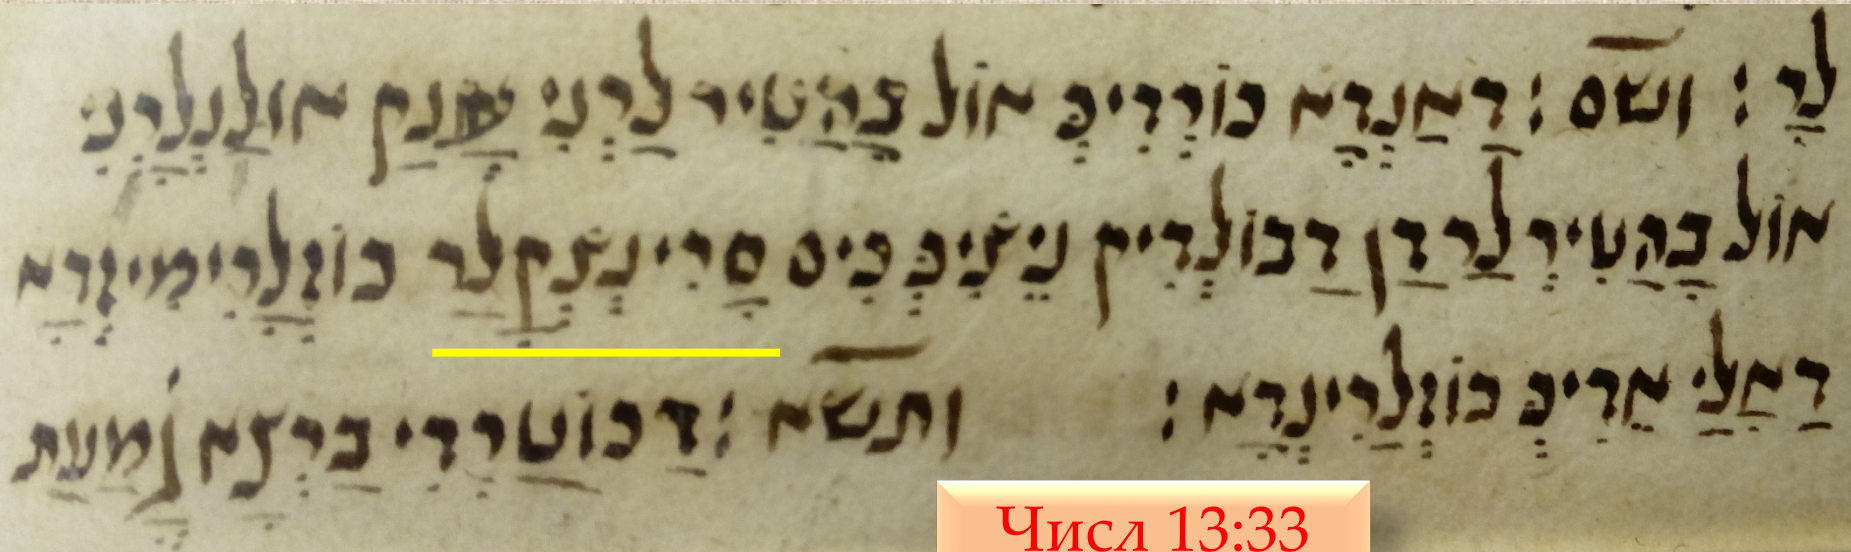 לַר : ושם : דַאַנְדָא כוֹרְדִיכְּ אוֹל בָּהַטִיר לַרְנִי עֲנַק אוּלַנְלַרְנִי
אוֹל בָּהַטִירְ לַר דַן דַבוֹלְדִיק נֵיצִיכְּ כִּיס סַרִינְצְקָלַר כוֹזְלַרִימִיזְדָא
דַאַלַי אֵדִיכְּ כוֹזְלַרִינְדָא : ותשא : דַכוֹטַרְדִי בַּרְצָא גָמַעַת
Числ 13:33